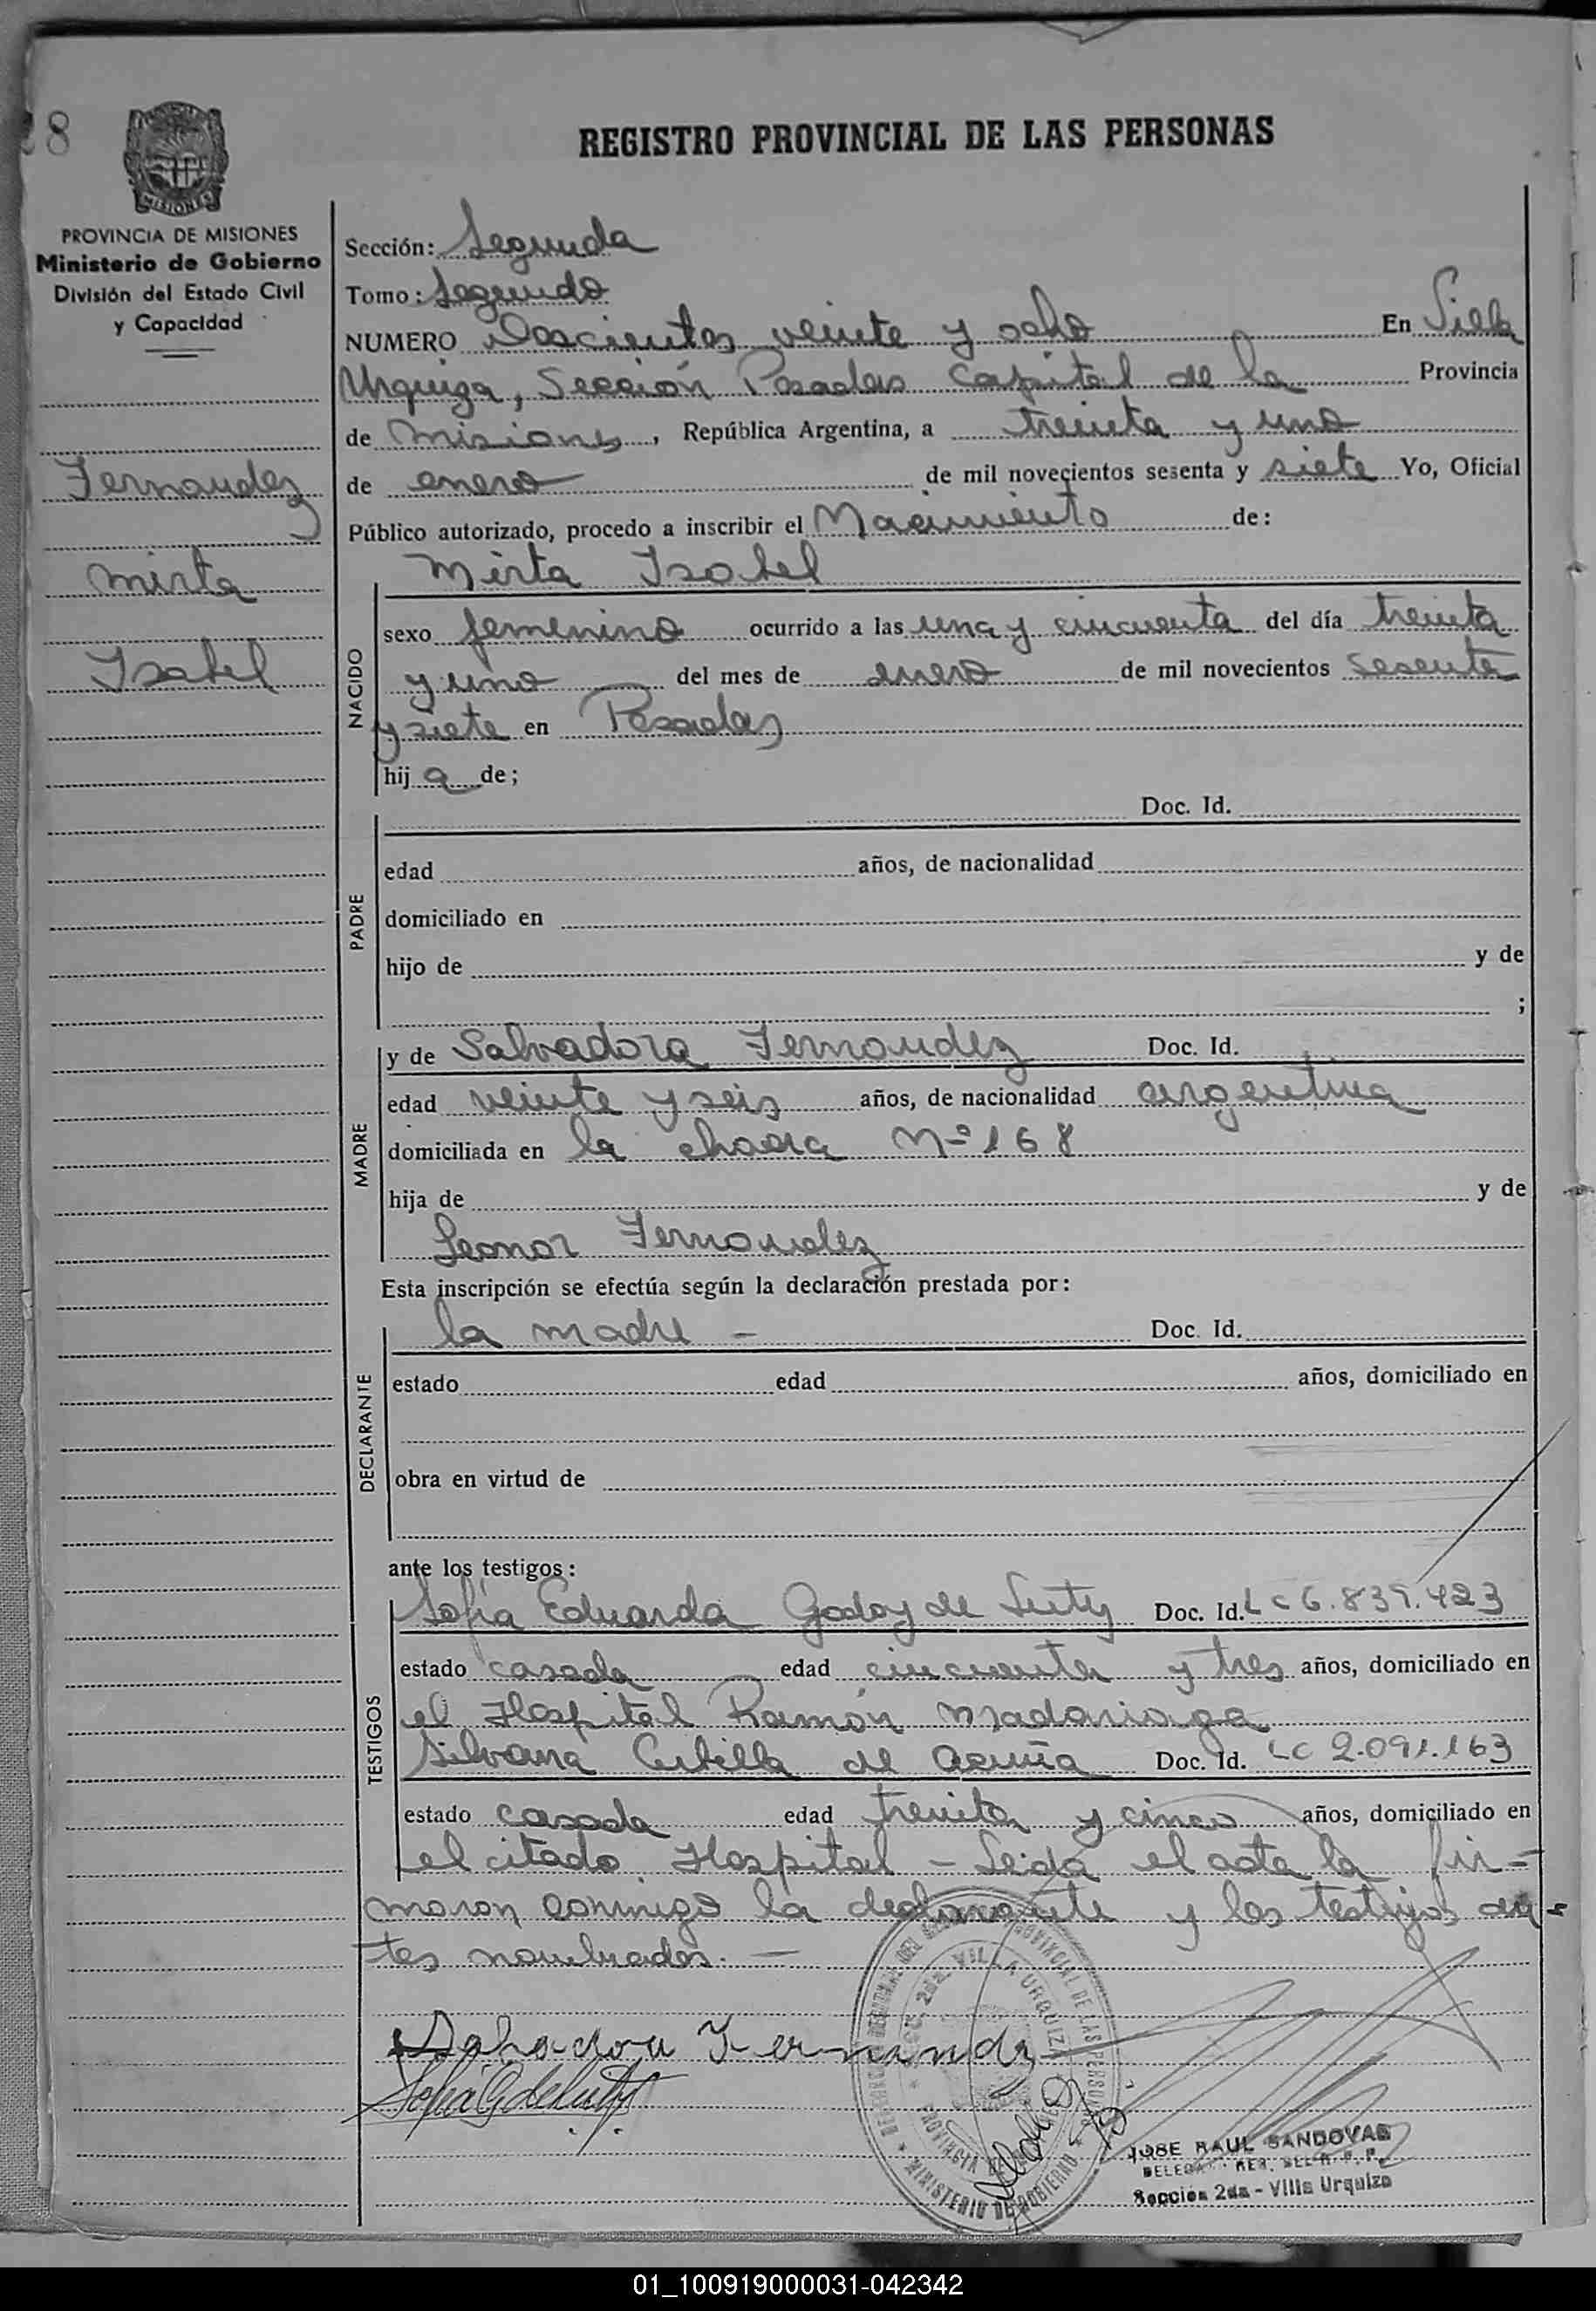 28
MISIONES
PROVINCIA DE MISIONES
Ministerio de Gobierno
División del Estado Civil
y Capacidad
Fernandez
Mirta
Isabel
REGISTRO PROVINCIAL DE LAS PERSONAS
Sección: Segunda
Tomo: Segundo
NUMERO Doscientos veinte y ocho En Villa
Urquiza, Sección Posadas Capital de la Provincia
de Misiones, República Argentina, a treinta y uno
de enero de mil novecientos sesenta y siete Yo, Oficial
Público autorizado, procedo a inscribir el Nacimiento de:
Mirta Isabel
NACIDO
sexo femenino ocurrido a las una y cincuenta del día treinta
y uno del mes de enero de mil novecientos sesenta
y siete en Posadas
hij a de;
PADRE
Doc. Id.
edad años, de nacionalidad
domiciliado en
hijo de y de
;
MADRE
y de Salvadora Fernandez Doc. Id.
edad veinte y seis años, de nacionalidad argentina
domiciliada en la chacra Nº 168
hija de y de
Leonor Fernandez
Esta inscripción se efectúa según la declaración prestada por:
DECLARANTE
la madre - Doc. Id.
estado edad años, domiciliado en
obra en virtud de
ante los testigos:
TESTIGOS
Sofia Eduarda Godoy de Doc. Id. LC 6.839.423
estado casada edad cincuenta y tres años, domiciliado en
el Hospital Ramón Madariaga
Silvana de Acuña Doc. Id. LC 2.091.163
estado casada edad treinta y cinco años, domiciliado en
el citado Hospital - Leida el acta la fir-
maron conmigo la declarante y los testigos an-
tes nombrados. -
Salvadora Fernandez
PROVINCIAL DE LAS PERSONAS
SEC. 2da. VILLA URQUIZA
PROVINCIA DE
MINISTERIO DE GOBIERNO
JOSE RAUL SANDOVAL
Sección 2da - Villa Urquiza
01_100919000031-042342